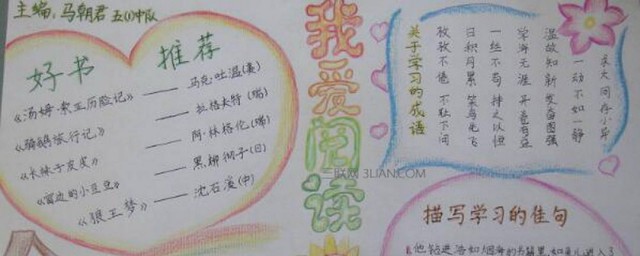 主编：马朝君 五(1)中队
好书 推荐
《汤姆·索亚历险记》—— 马克·吐温(美)
《骑鹅旅行记》—— 拉格夫特(瑞)
《长袜子皮皮》—— 阿·林格伦(瑞)
《窗边的小豆豆》—— 黑柳彻子(日)
《狼王梦》—— 沈石溪(中)
我爱阅读
关于学习的成语
孜孜不倦 不耻下问
日积月累 笨鸟先飞
一丝不苟 持之以恒
学海无涯 开卷有益
温故知新 发奋图强
一动不如一静
求大同存小异
三联网 3LIAN.COM
描写学习的佳句
1.他钻进浩如烟海的书籍里,如鱼儿进入了